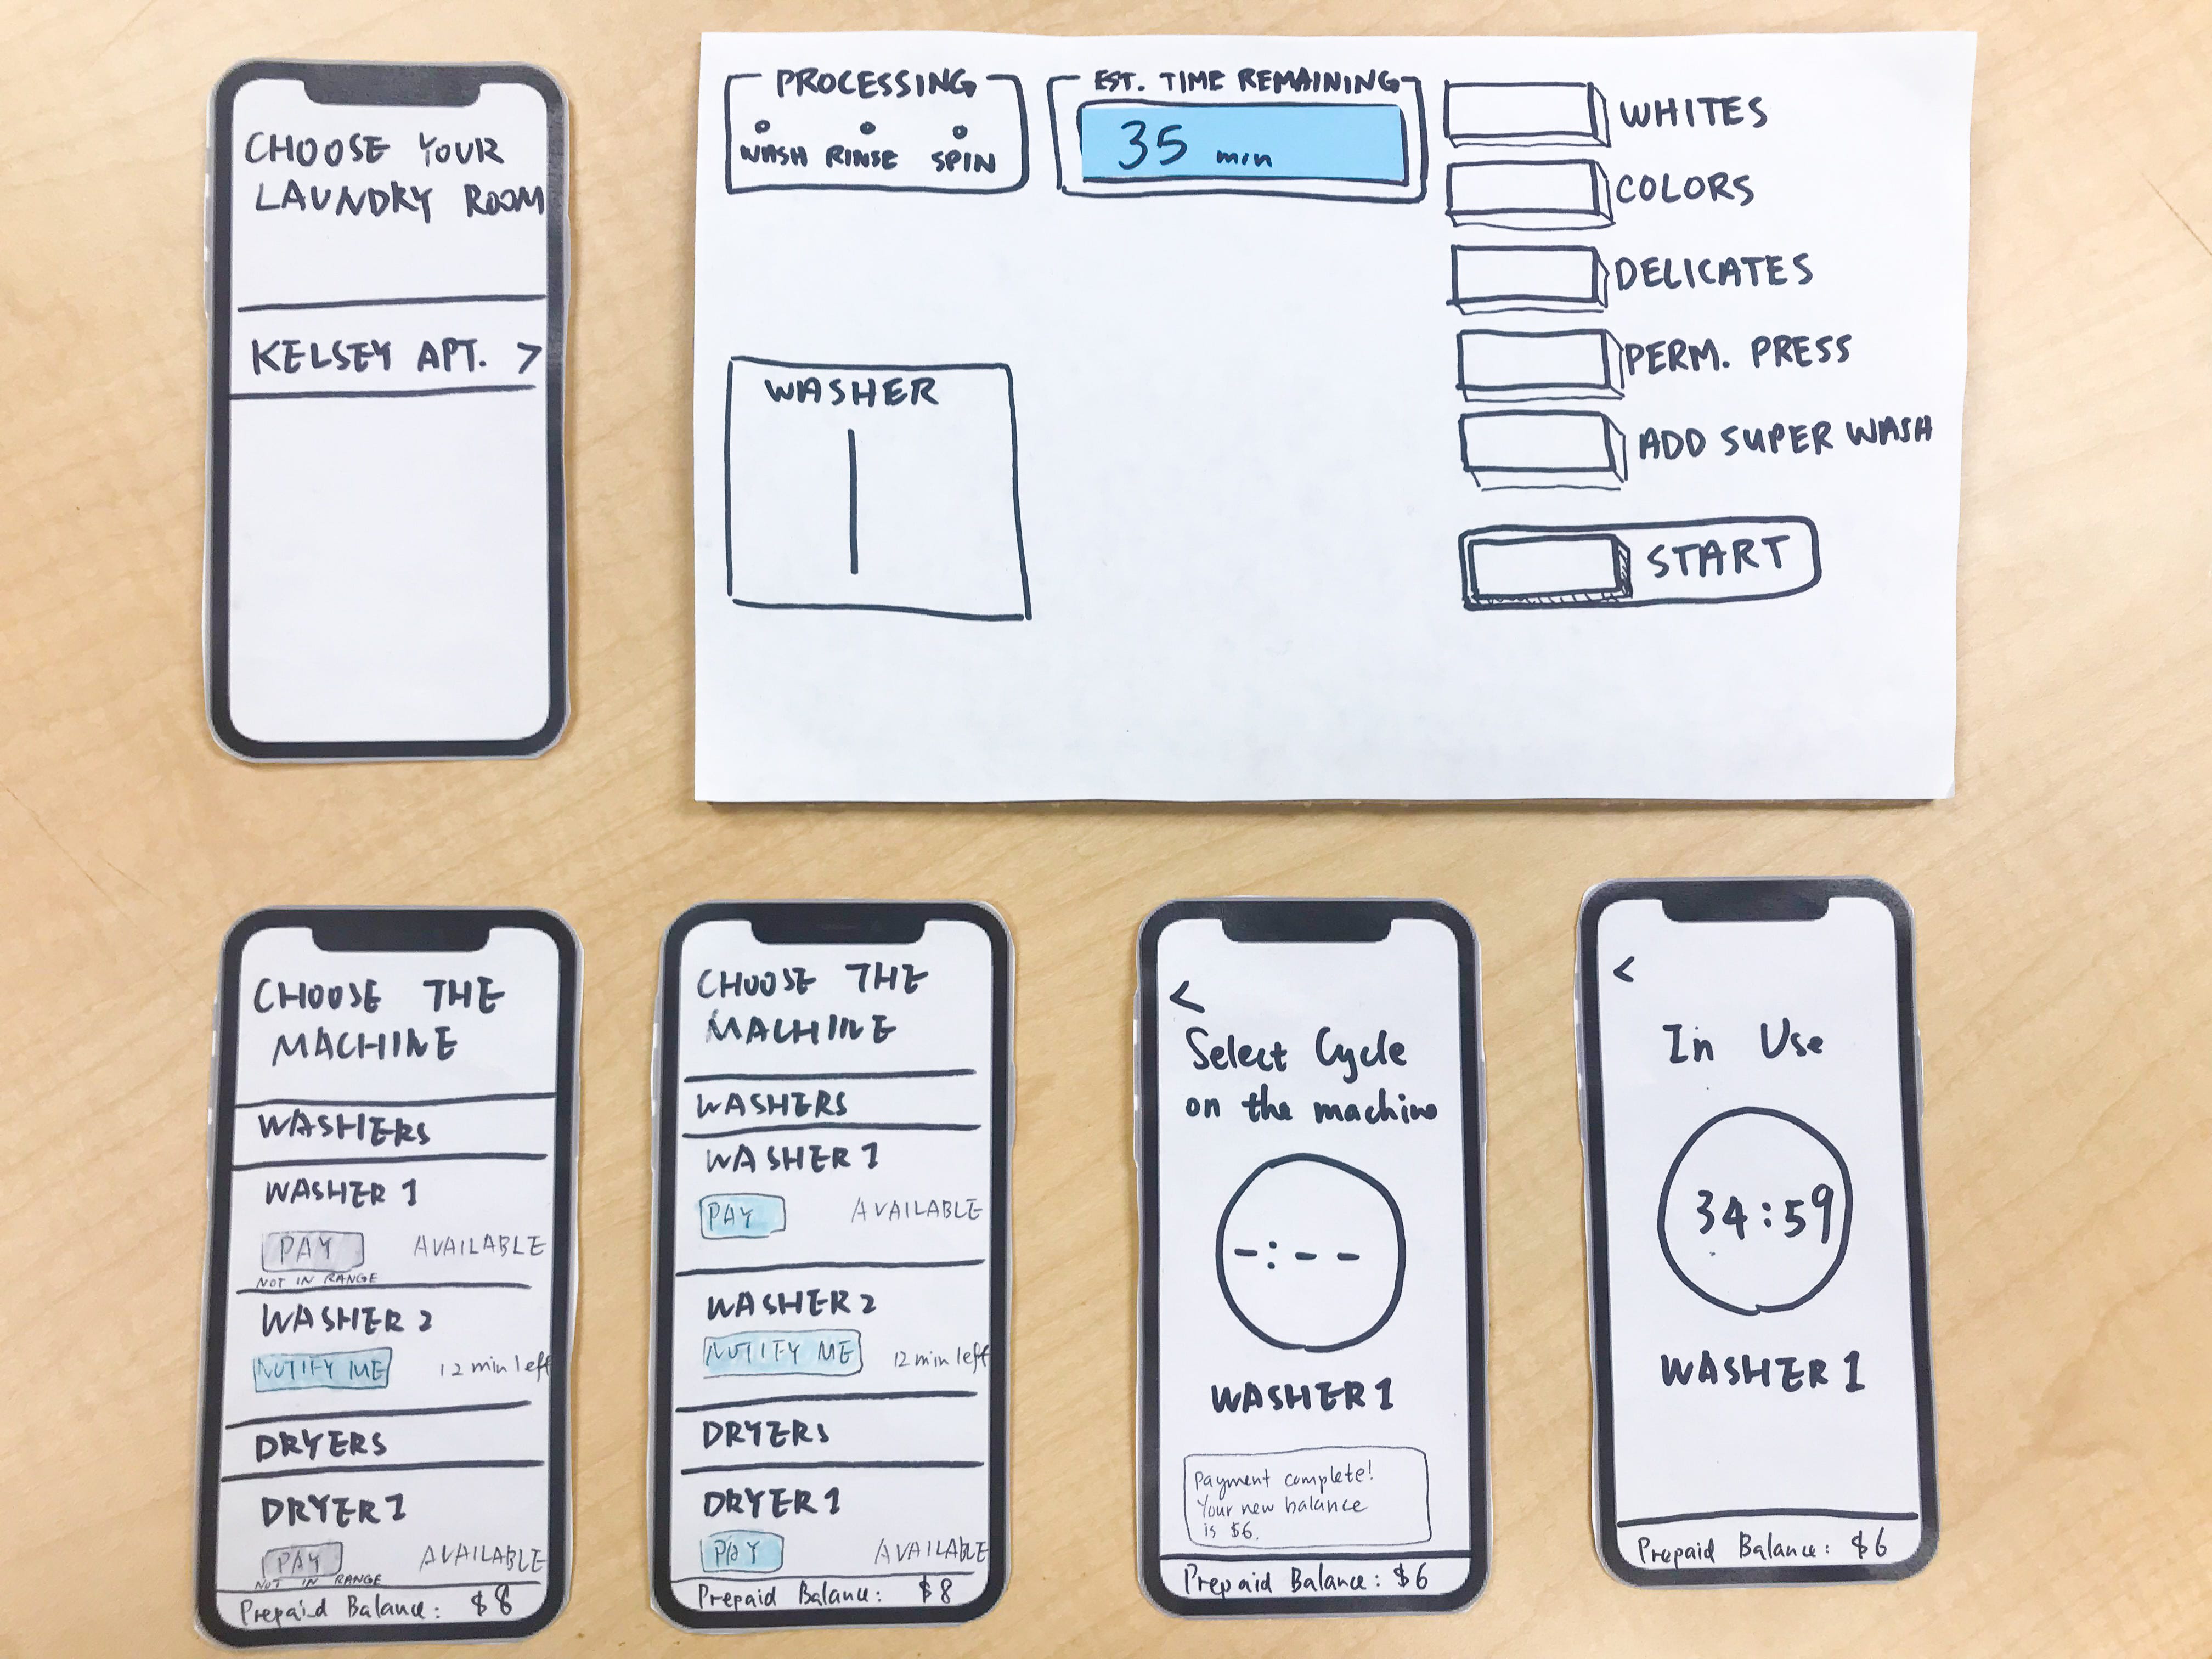 CHOOSE YOUR
LAUNDRY ROOM
KELSEY APT. >
PROCESSING
WASH RINSE SPIN
EST. TIME REMAINING
35 min
WASHER
1
WHITES
COLORS
DELICATES
PERM. PRESS
ADD SUPER WASH
START
CHOOSE THE
MACHINE
WASHERS
WASHER 1
PAY AVAILABLE
NOT IN RANGE
WASHER 2
NOTIFY ME 12 min left
DRYERS
DRYER 1
PAY AVAILABLE
NOT IN RANGE
Prepaid Balance: $8
CHOOSE THE
MACHINE
WASHERS
WASHER 1
PAY AVAILABLE
WASHER 2
NOTIFY ME 12 min left
DRYERS
DRYER 1
PAY AVAILABLE
Prepaid Balance: $8
<
Select Cycle
on the machine
-:--
WASHER 1
Payment complete!
Your new balance
is $6.
Prepaid Balance: $6
<
In Use
34:59
WASHER 1
Prepaid Balance: $6